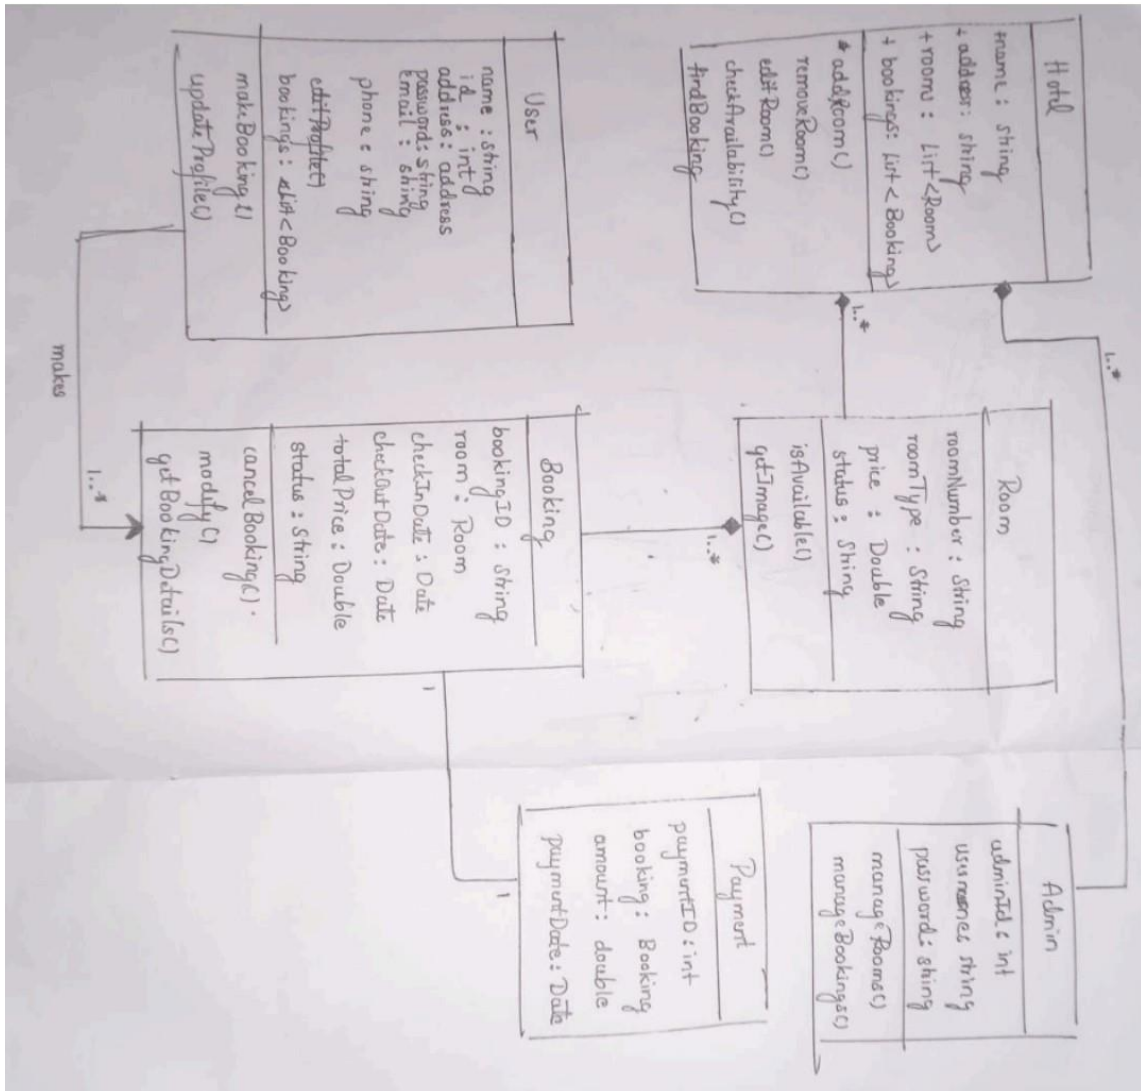 Hotel
+name : string
+ address : string
+ rooms : List <Room>
+ bookings : List < Booking>
addRoom()
removeRoom()
editRoom()
checkAvailability()
findBooking
1..*
1..*
Room
roomNumber : String
roomType : String
price : Double
status : String
isAvailable()
getImage()
1..*
Admin
adminId : int
string
password : string
manageRooms()
manageBookings()
User
name : string
id : int
address : address
password : string
email : string
phone : string
editProfile()
bookings : List < Booking>
makeBooking()
updateProfile()
makes
1..*
Booking
bookingID : String
room : Room
checkInDate : Date
checkOutDate : Date
totalPrice : Double
status : String
cancelBooking().
modify()
getBookingDetails()
1
1
Payment
paymentID : int
booking : Booking
amount : double
paymentDate : Date